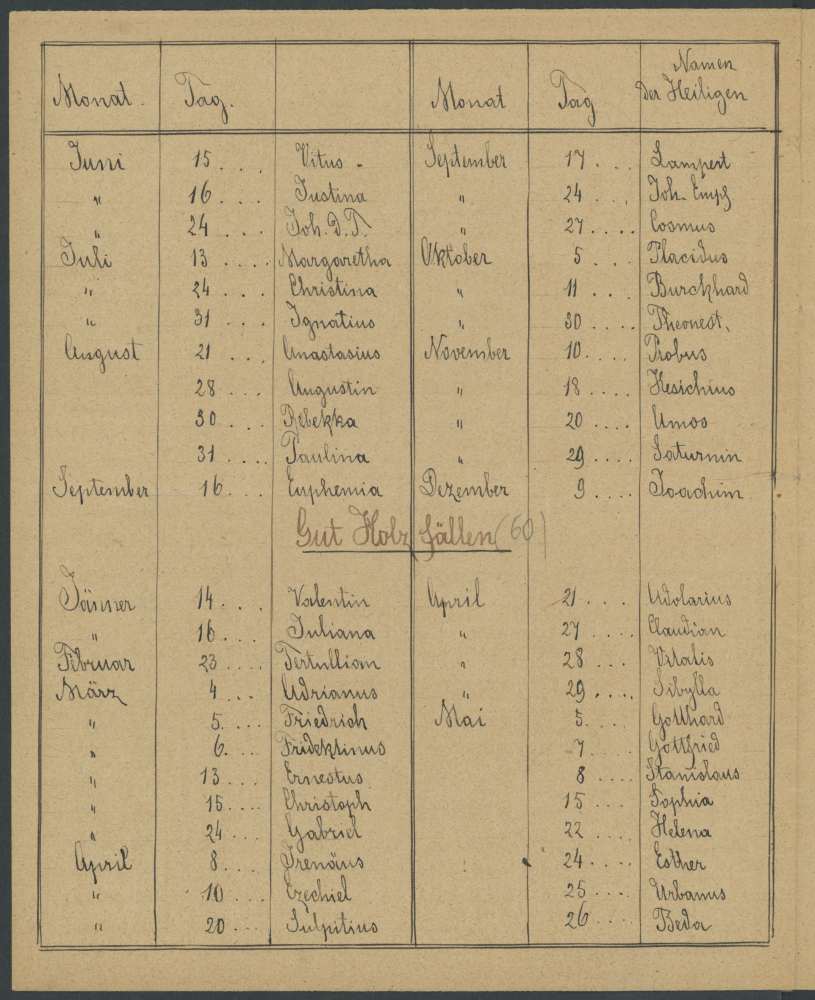 Monat. Tag. Monat Tag Namen
Der Heiligen
Juni 15 . . . Vitus - September 17 . . . Lampert
" 16 . . . Justina " 24 . . . Joh. Empf
" 24 . . . Joh. D. T. " 27 . . . . Cosmus
Juli 13 . . . . Margaretha Oktober 5 . . . Placidus
" 24 . . . . Christina " 11 . . . Burckhard
" 31 . . . Ignatius " 30 . . . . Theonest.
August 21 . . . Anastasius November 10 . . . . Probus
28 . . . Augustin " 18 . . . . Hesichius
30 . . . Rebekka " 20 . . . . Amos
31 . . . . Paulina " 29 . . . . Saturnin
September 16 . . . Euphemia Dezember 9 . . . . Joachim
Gut Holz fällen (60)
Jänner 14 . . . Valentin April 21 . . . Adolarius
" 16 . . . Juliana " 27 . . . Claudian
Februar 23 . . . . Tertullian " 28 . . . Vitalis
März 4 . . . Adrianus " 29 . . . . Sibylla
" 5. . . . Friedrich Mai 5. . . . Gotthard
" 6. . . . Fridektinus 7 . . . . Gottfried
" 13 . . . Ernestus 8 . . . . Stanislaus
" 15 . . . . Christoph 15 . . . Sophia
" 24 . . . Gabriel 22 . . . . Helena
April 8 . . . . Irenäus 24 . . . . Esther
" 10 . . . Ezechiel 25 . . . . Urbanus
" 20 . . . Sulpitius 26 . . . . Beda